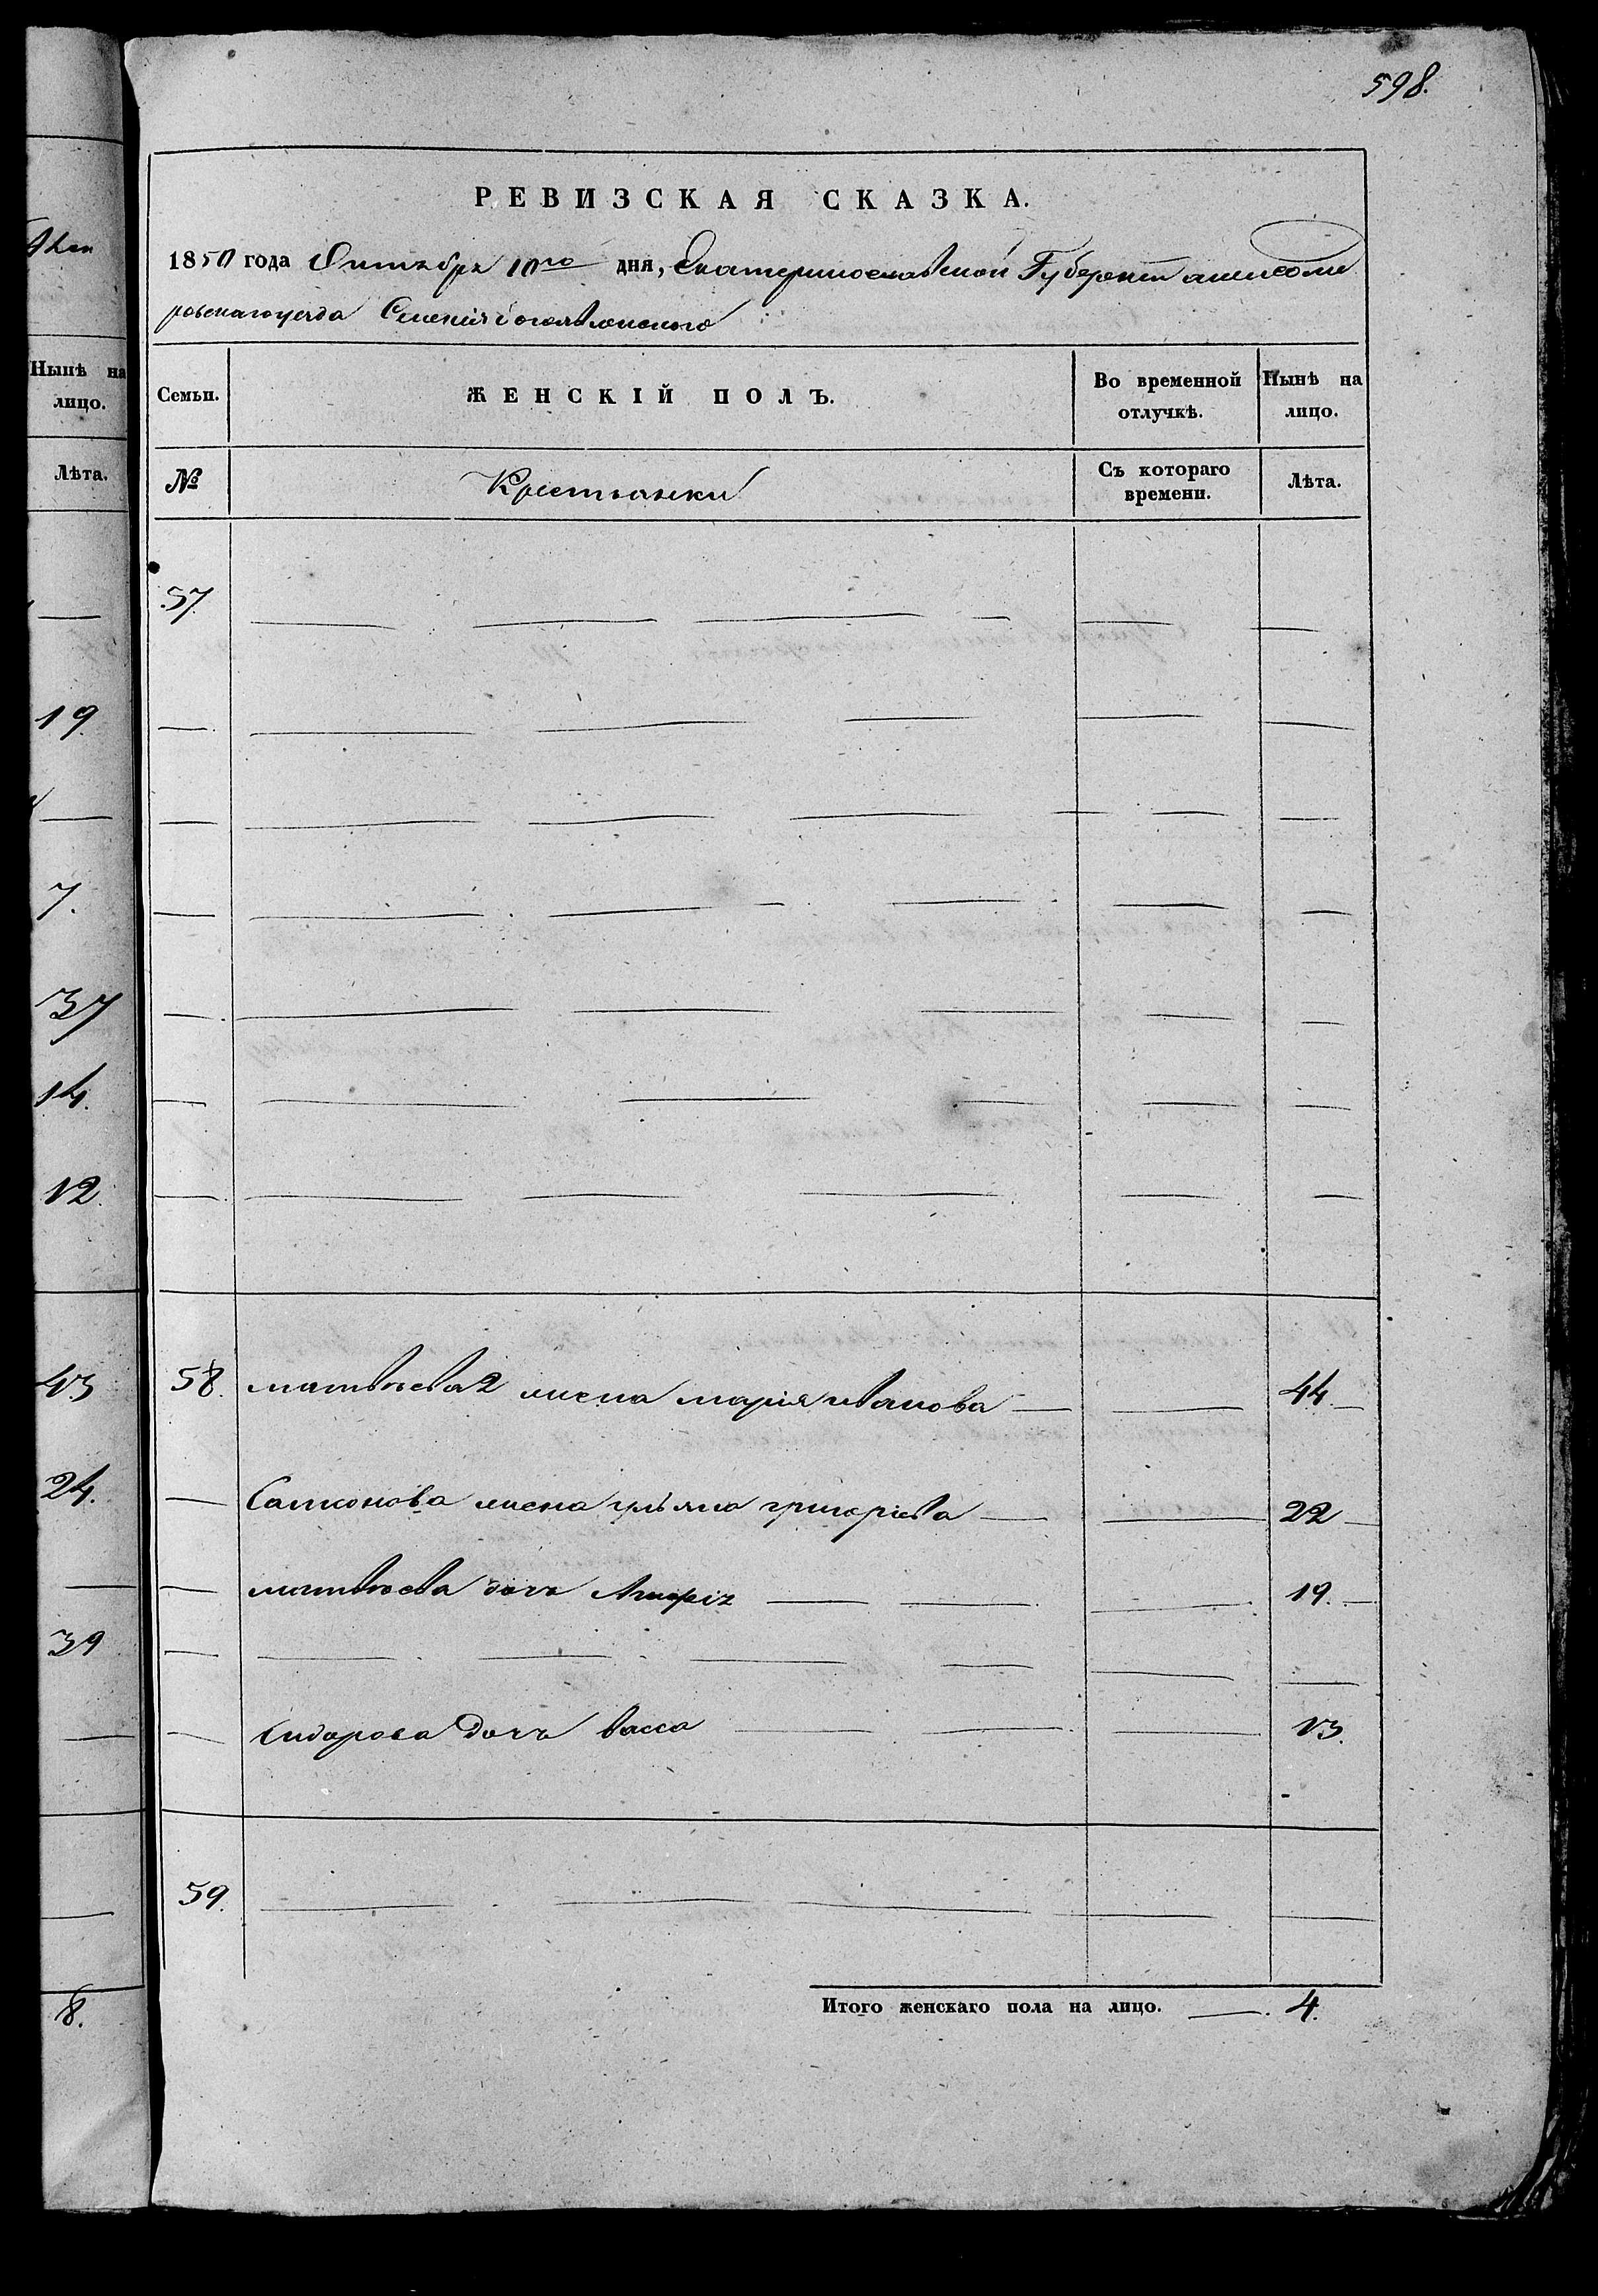 598.
РЕВИЗСКАЯ СКАЗКА.
1850 года Октября 10го дня, Екатеринославской Губернии
уезда Селения
Семьи.
ЖЕНСКІЙ ПОЛЪ.
Во временной отлучкѣ.
Нынѣ на лицо.
№
Крестьянки
Съ котораго времени.
Лѣта.
57.
58. матвѣева 2 жена марія иванова 44
Самсонова жена ульяна григорієва 22
матвѣева дочь 19.
Сидорова Дочь васса 13.
59.
Итого женскаго пола на лицо. 4.
Нынѣ на
лицо.
Лѣта.
19.
7.
37
14.
12.
43
24.
39
8.